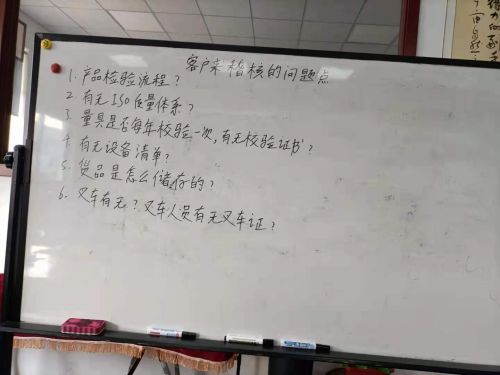 客户来稽核的问题点
1. 产品检验流程?
2. 有无ISO质量体系?
3. 量具是否每年校验一次,有无校验证书?
4. 有无设备清单?
5. 货品是怎么储存的?
6. 叉车有无?叉车人员有无叉车证?